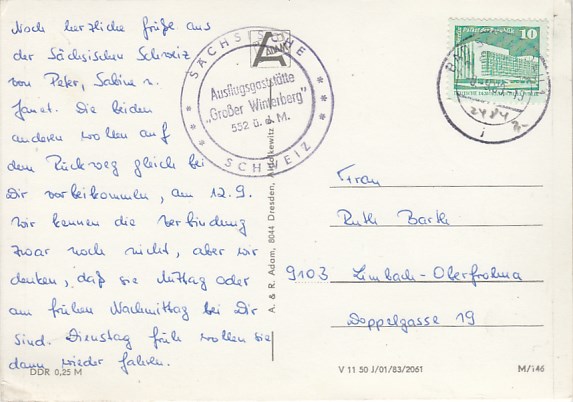 Noch herzliche Grüße aus
der Sächsischen Schweiz
von Peter, Sabine u.
Janet. Die beiden
anderen wollen auf
dem Rückweg gleich bei
Dir vorbeikommen, am 12.9.
Wir kennen die Verbindung
zwar noch nicht, aber wir
denken, daß sie Mittag oder
am frühen Nachmittag bei Dir
sind. Dienstag früh wollen sie
dann wieder fahren.
DDR 0,25 M
SÄCHSISCHE
ADAM
Ausflugsgaststätte
„Großer Winterberg“
552 ü. d. M.
SCHWEIZ
A. & R. Adam, 8044 Dresden,
10
Frau
Ruth Barth
9103 Limbach-Oberfrohna
Doppelgasse 19
V 11 50 J/01/83/2061
M/146